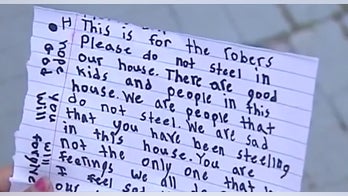 This is for the robers
Please do not steel in
our house. There are good
kids and people in this
house. We are people that
do not steel. We are sad
that you have been steeling
in this house. You are
not the only one that
feelings we all do
feel sad
our
I
Hope
God
will
forgive
you